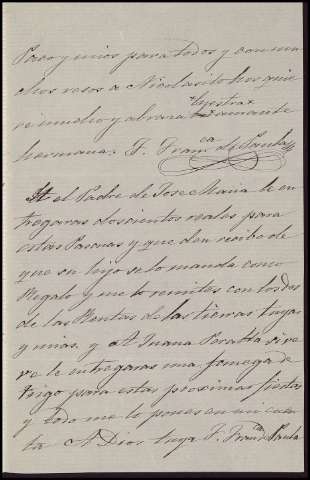 Paco y mios para todos y con mu
chos vesos a Nicolasito hos quie
re mucho y abraza vuestra amante
hermana; F. Fran^ca de Paula
At el Padre de Jose Maria le en
tregaras doscientos reales para
estas Pascuas y que den recibo de
que su hijo se lo manda como
Regalo y me lo remites con los dos
de las Rentas de las tierras tuyas
y mias, y At Juana Peralta si vi
ve le entregaras una fanega de
trigo para estas proximas fiestas
y todo me lo pones en mi cuen
ta A Dios tuya F. Fran^ca de Paula